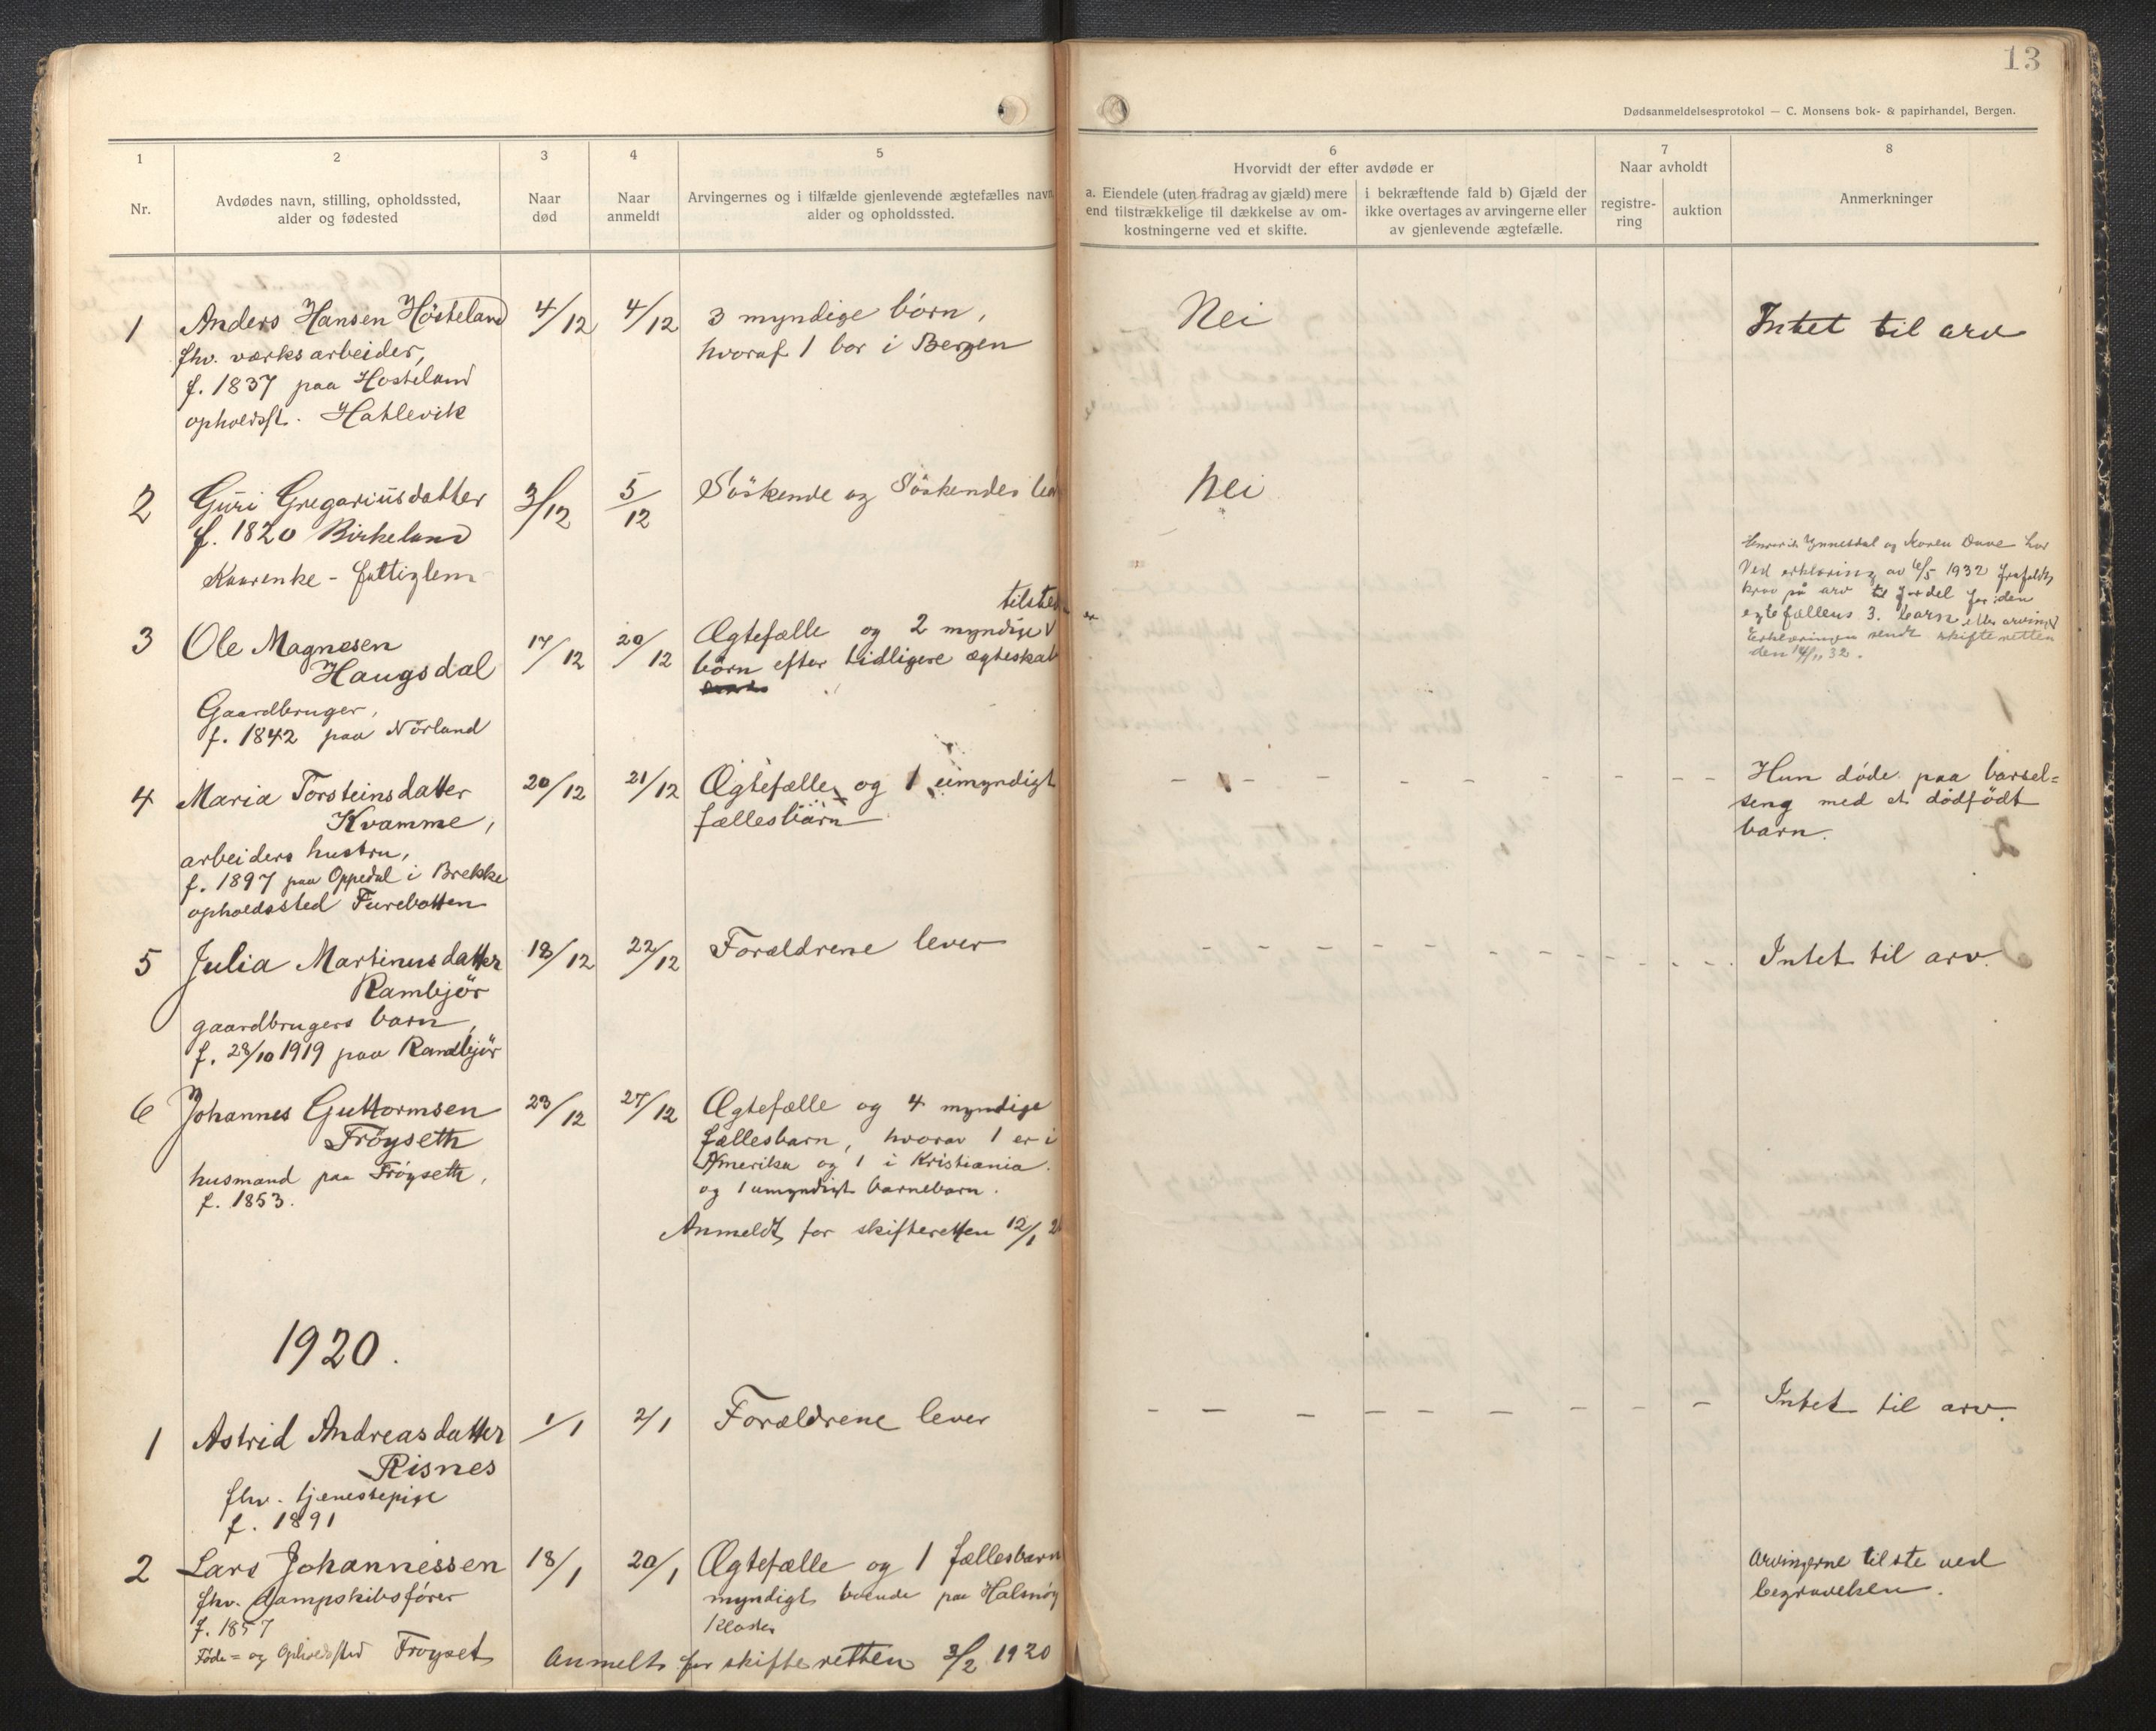 13
Dødsanmeldelsesprotokol — C. Monsens bok- & papirhandel, Bergen.
1
Nr.
2
Avdødes navn, stilling, opholdssted,
alder og fødested
3
Naar
død
4
Naar
anmeldt
5
Arvingernes og i tilfælde gjenlevende ægtefælles navn
alder og opholdssted.
6
Hvorvidt der efter avdøde er
a. Eiendele (uten fradrag av gjæld) mere
end tilstrækkelige til dækkelse av om-
kostningerne ved et skifte.
i bekræftende fald b) Gjæld der
ikke overtages av arvingerne eller
av gjenlevende ægtefælle.
7
Naar avholdt
registre-
ring
auktion
8
Anmerkninger
1
Anders Hansen Hösteland
fhv. værksarbeider,
f. 1837 paa Hosteland
opholdsst. Hatlevik
4/12
4/12
3 myndige börn,
hvoraf 1 bor i Bergen
Nei
Intet til arv
2
Guri Gregariusdatter
f. 1820 Birkeland
fattiglem
3/12
5/12
Söskende og Söskendes
Nei
3
Ole Magnesen
Haugsdal
Gaardbruger,
f. 1842 paa Nörland
17/12
20/12
tilsted
Ægtefælle og 2 myndige
börn efter tidligere ægteskab
Ynnesdal og Maren har
Ved erklæring av 6/5 1932 frafaldt
krav på arv til fordel for den
egtefællens 3. barn eller arvinger
Erklæringen sendt skifteretten
den 14/11 32.
4
Maria Torsteinsdatter
Kvamme,
arbeiders hustru,
f. 1897 paa Oppedal i Brekke
opholdssted Furebotten
20/12
21/12
Ægtefælle og 1 umyndigt
fællesbarn
Hun döde paa barsel=
seng med et dödfödt
barn.
5
Julia Martinusdatter
Rambjör
gaardbrugers barn,
f. 28/10 1919 paa Rambjör
18/12
22/12
Forældrene lever
Intet til arv.
6
Johannes Guttormsen
Fröyseth
husmand paa Fröyseth,
f. 1853.
23/12
27/12
Ægtefælle og 4 myndige
fællesbarn, hvorav 1 er i
Amerika og 1 i Kristiania.
og 1 umyndigt barnebarn.
Anmeldt for skifteretten 12/1 2
1920.
1
Astrid Andreasdatter
Risnes
fhv. tjenestepige
f. 1891
1/1
2/1
Forældrene lever
Intet til arv.
2
Lars Johannessen
fhv. dampskibsförer
f. 1857
Föde= og Opholdssted Fröyset
18/1
20/1
Ægtefælle og 1 fællesbarn
myndigt boende paa Halsnöy
Kloster
Anmelt for skifteretten 3/2 1920
Arvingerne tilste ved
begravelsen.